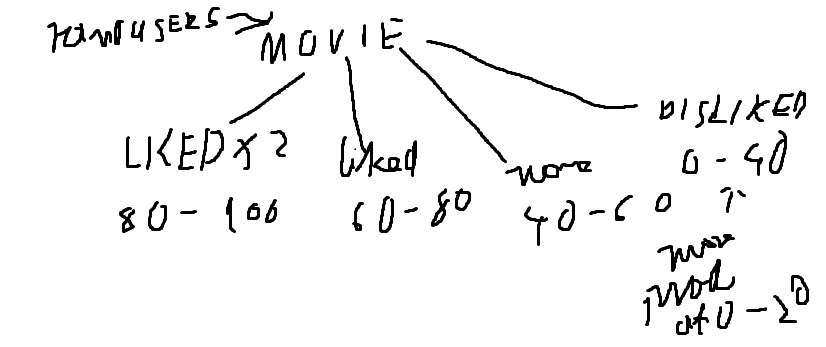 USERS → MOVIE
LIKED x2
80 - 100
liked
60 - 80
none
40 - 60
DISLIKED
0 - 40
↑
at 0 - 20